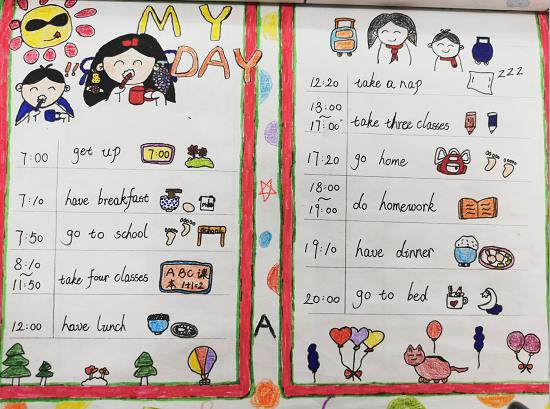 MY
DAY
!!
7:00 get up 7:00
7:10 have breakfast
7:50 go to school
8:10 ~ 11:50 take four classes ABC课本 1+1=2
12:00 have lunch
A
zzz
12:20 take a nap
13:00 ~ 17:00 take three classes
17:20 go home
18:00 ~ 19:00 do homework
19:10 have dinner
20:00 go to bed